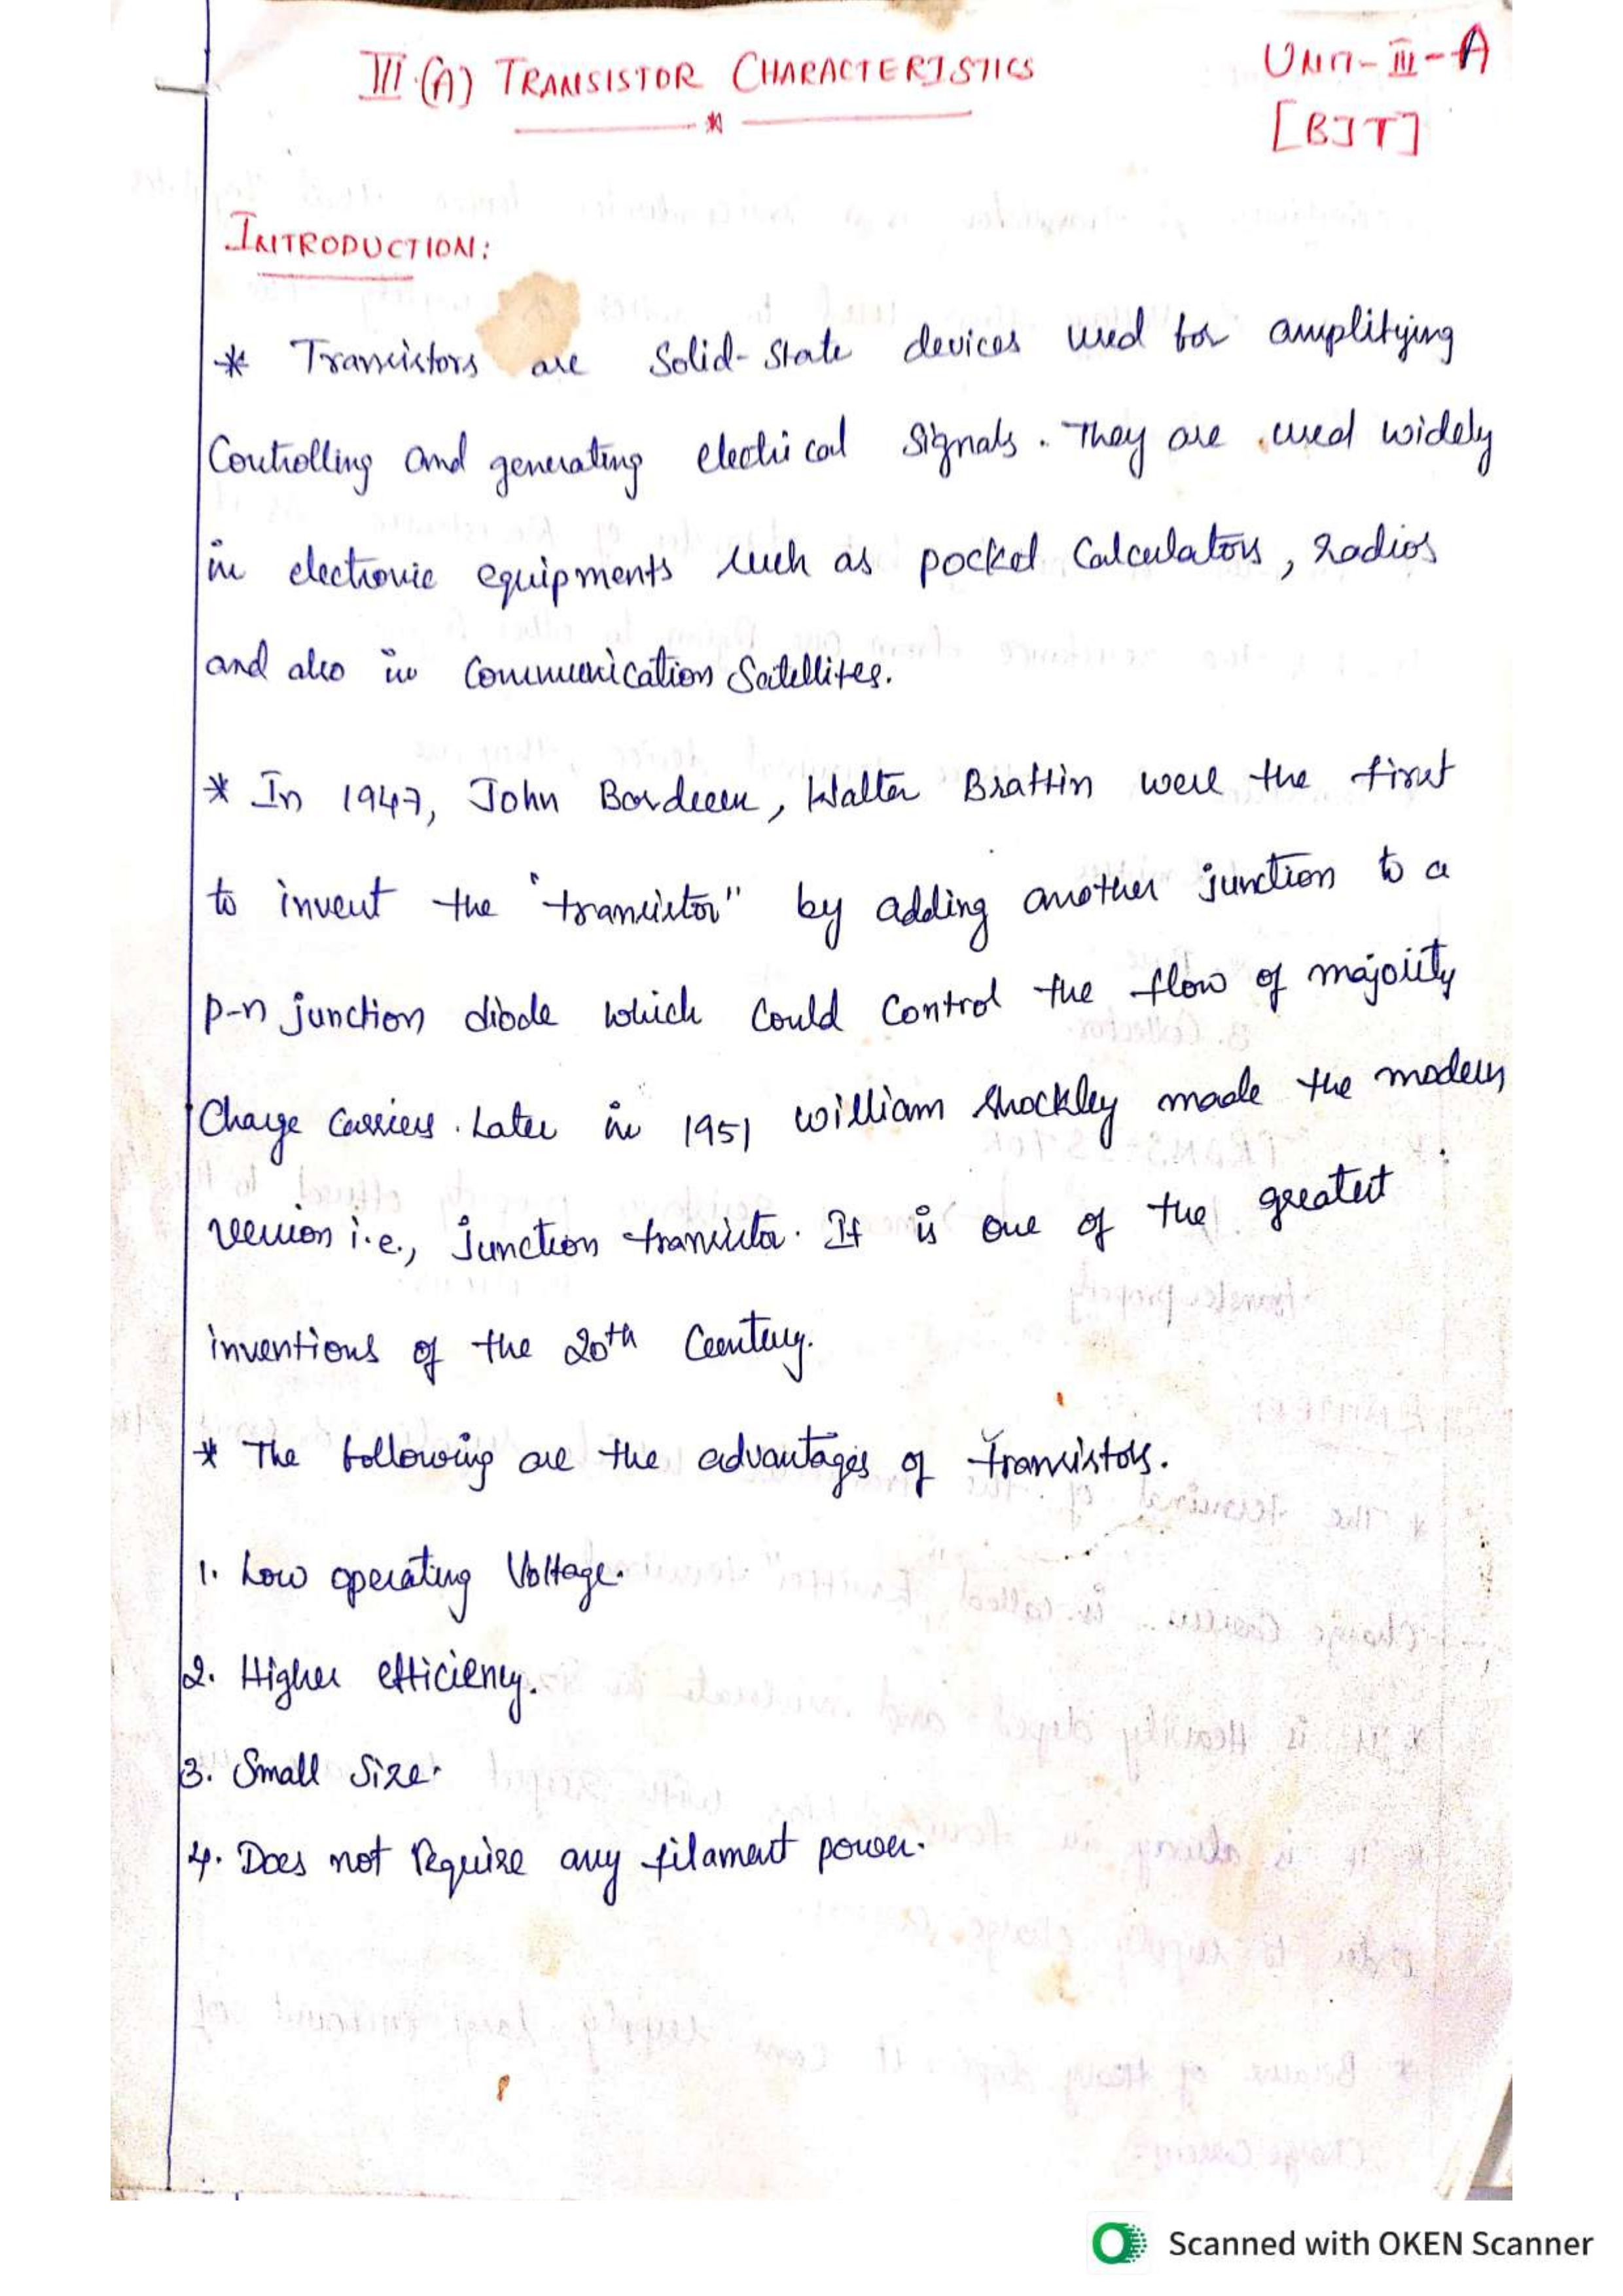 III.(A) TRANSISTOR CHARACTERISTICS
UNIT-III-A
[BJT]
INTRODUCTION:
* Transistors are Solid-State devices used for amplifying
Controlling and generating electrical Signals. They are used widely
in electronic equipments such as pocket Calculators, radios
and also in Communication Satellites.
* In 1947, John Bardeen, Walter Brattin were the first
to invent the "transistor" by adding another junction to a
p-n junction diode which could control the flow of majority
Charge Carriers. Later in 1951 William Shockley made the modern
version i.e., junction transistor. It is one of the greatest
inventions of the 20th Century.
* The following are the advantages of transistors.
1. Low operating Voltage.
2. Higher efficiency.
3. Small Size.
4. Does not require any filament power.
Scanned with OKEN Scanner